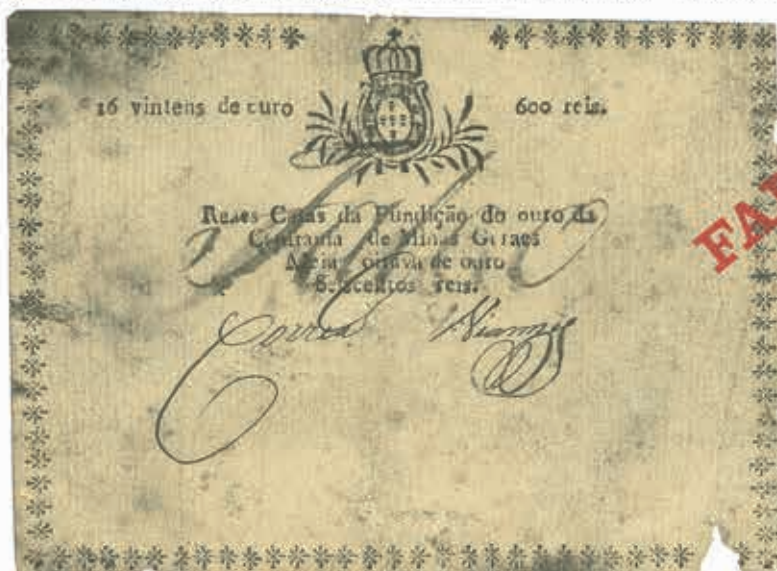 16 vintens de ouro 600 reis.
Reaes Casas da Fundição do ouro da
Capitania de Minas Geraes
Meia oitava de ouro
Seiscentos reis.
Correa Vianna
FA